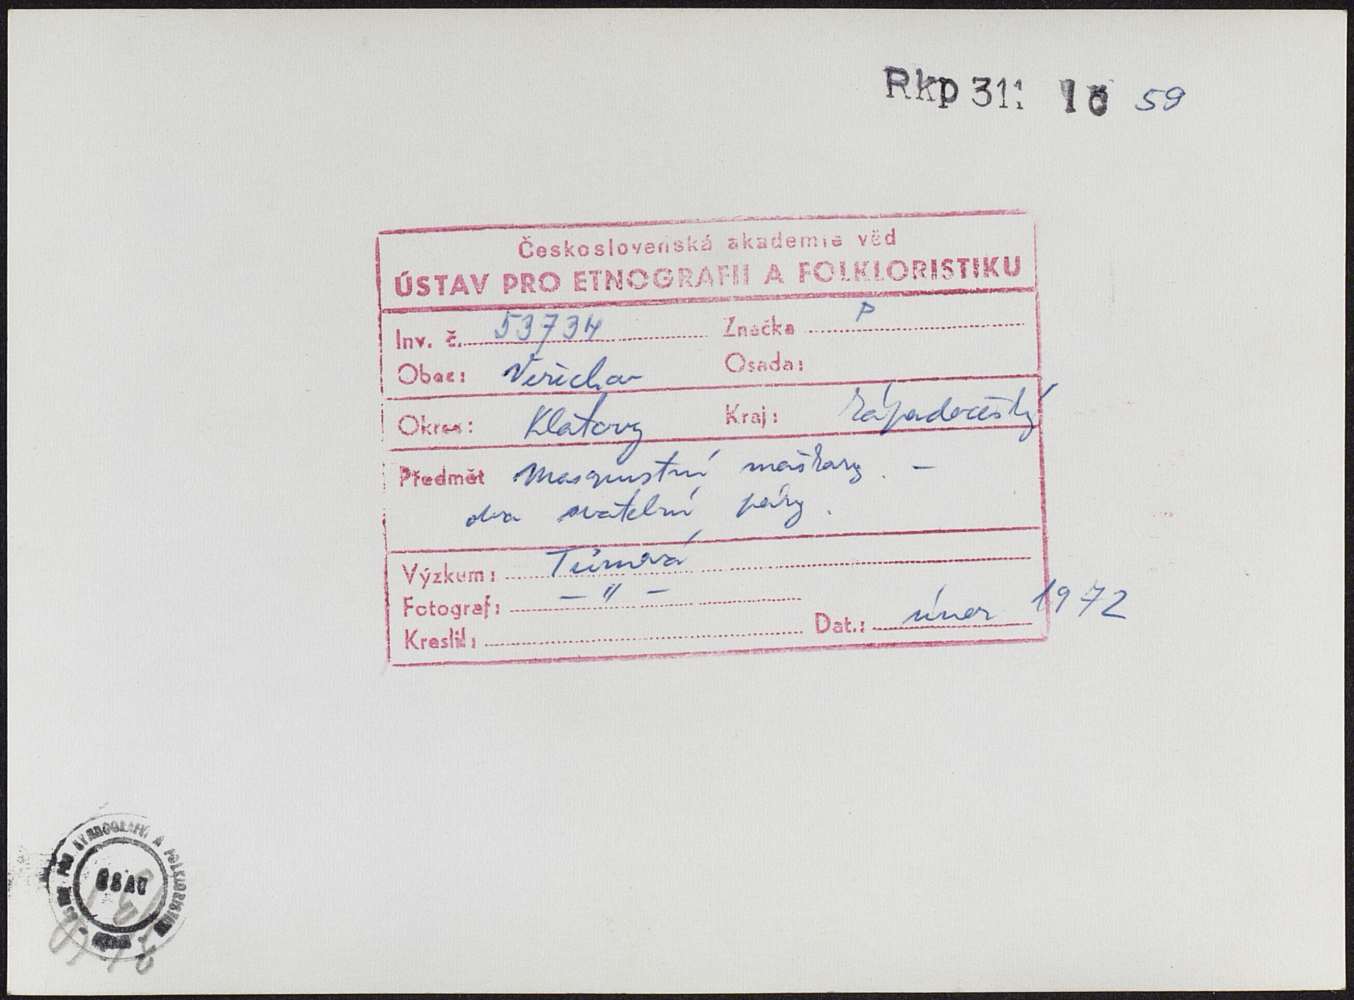 Rkp 311 16 59
Československá akademie věd
ÚSTAV PRO ETNOGRAFII A FOLKLORISTIKU
Inv. č. 53734 Značka P
Obec: Věřichov Osada:
Okres: Klatovy Kraj: Západočeský
Předmět Masopustní maškary. –
dva svatební páry.
Výzkum: Tůmová
Fotograf: – " –
Kreslil: Dat.: únor 1972
PRO ETNOGRAFII A FOLKLORISTIKU
ČSAV